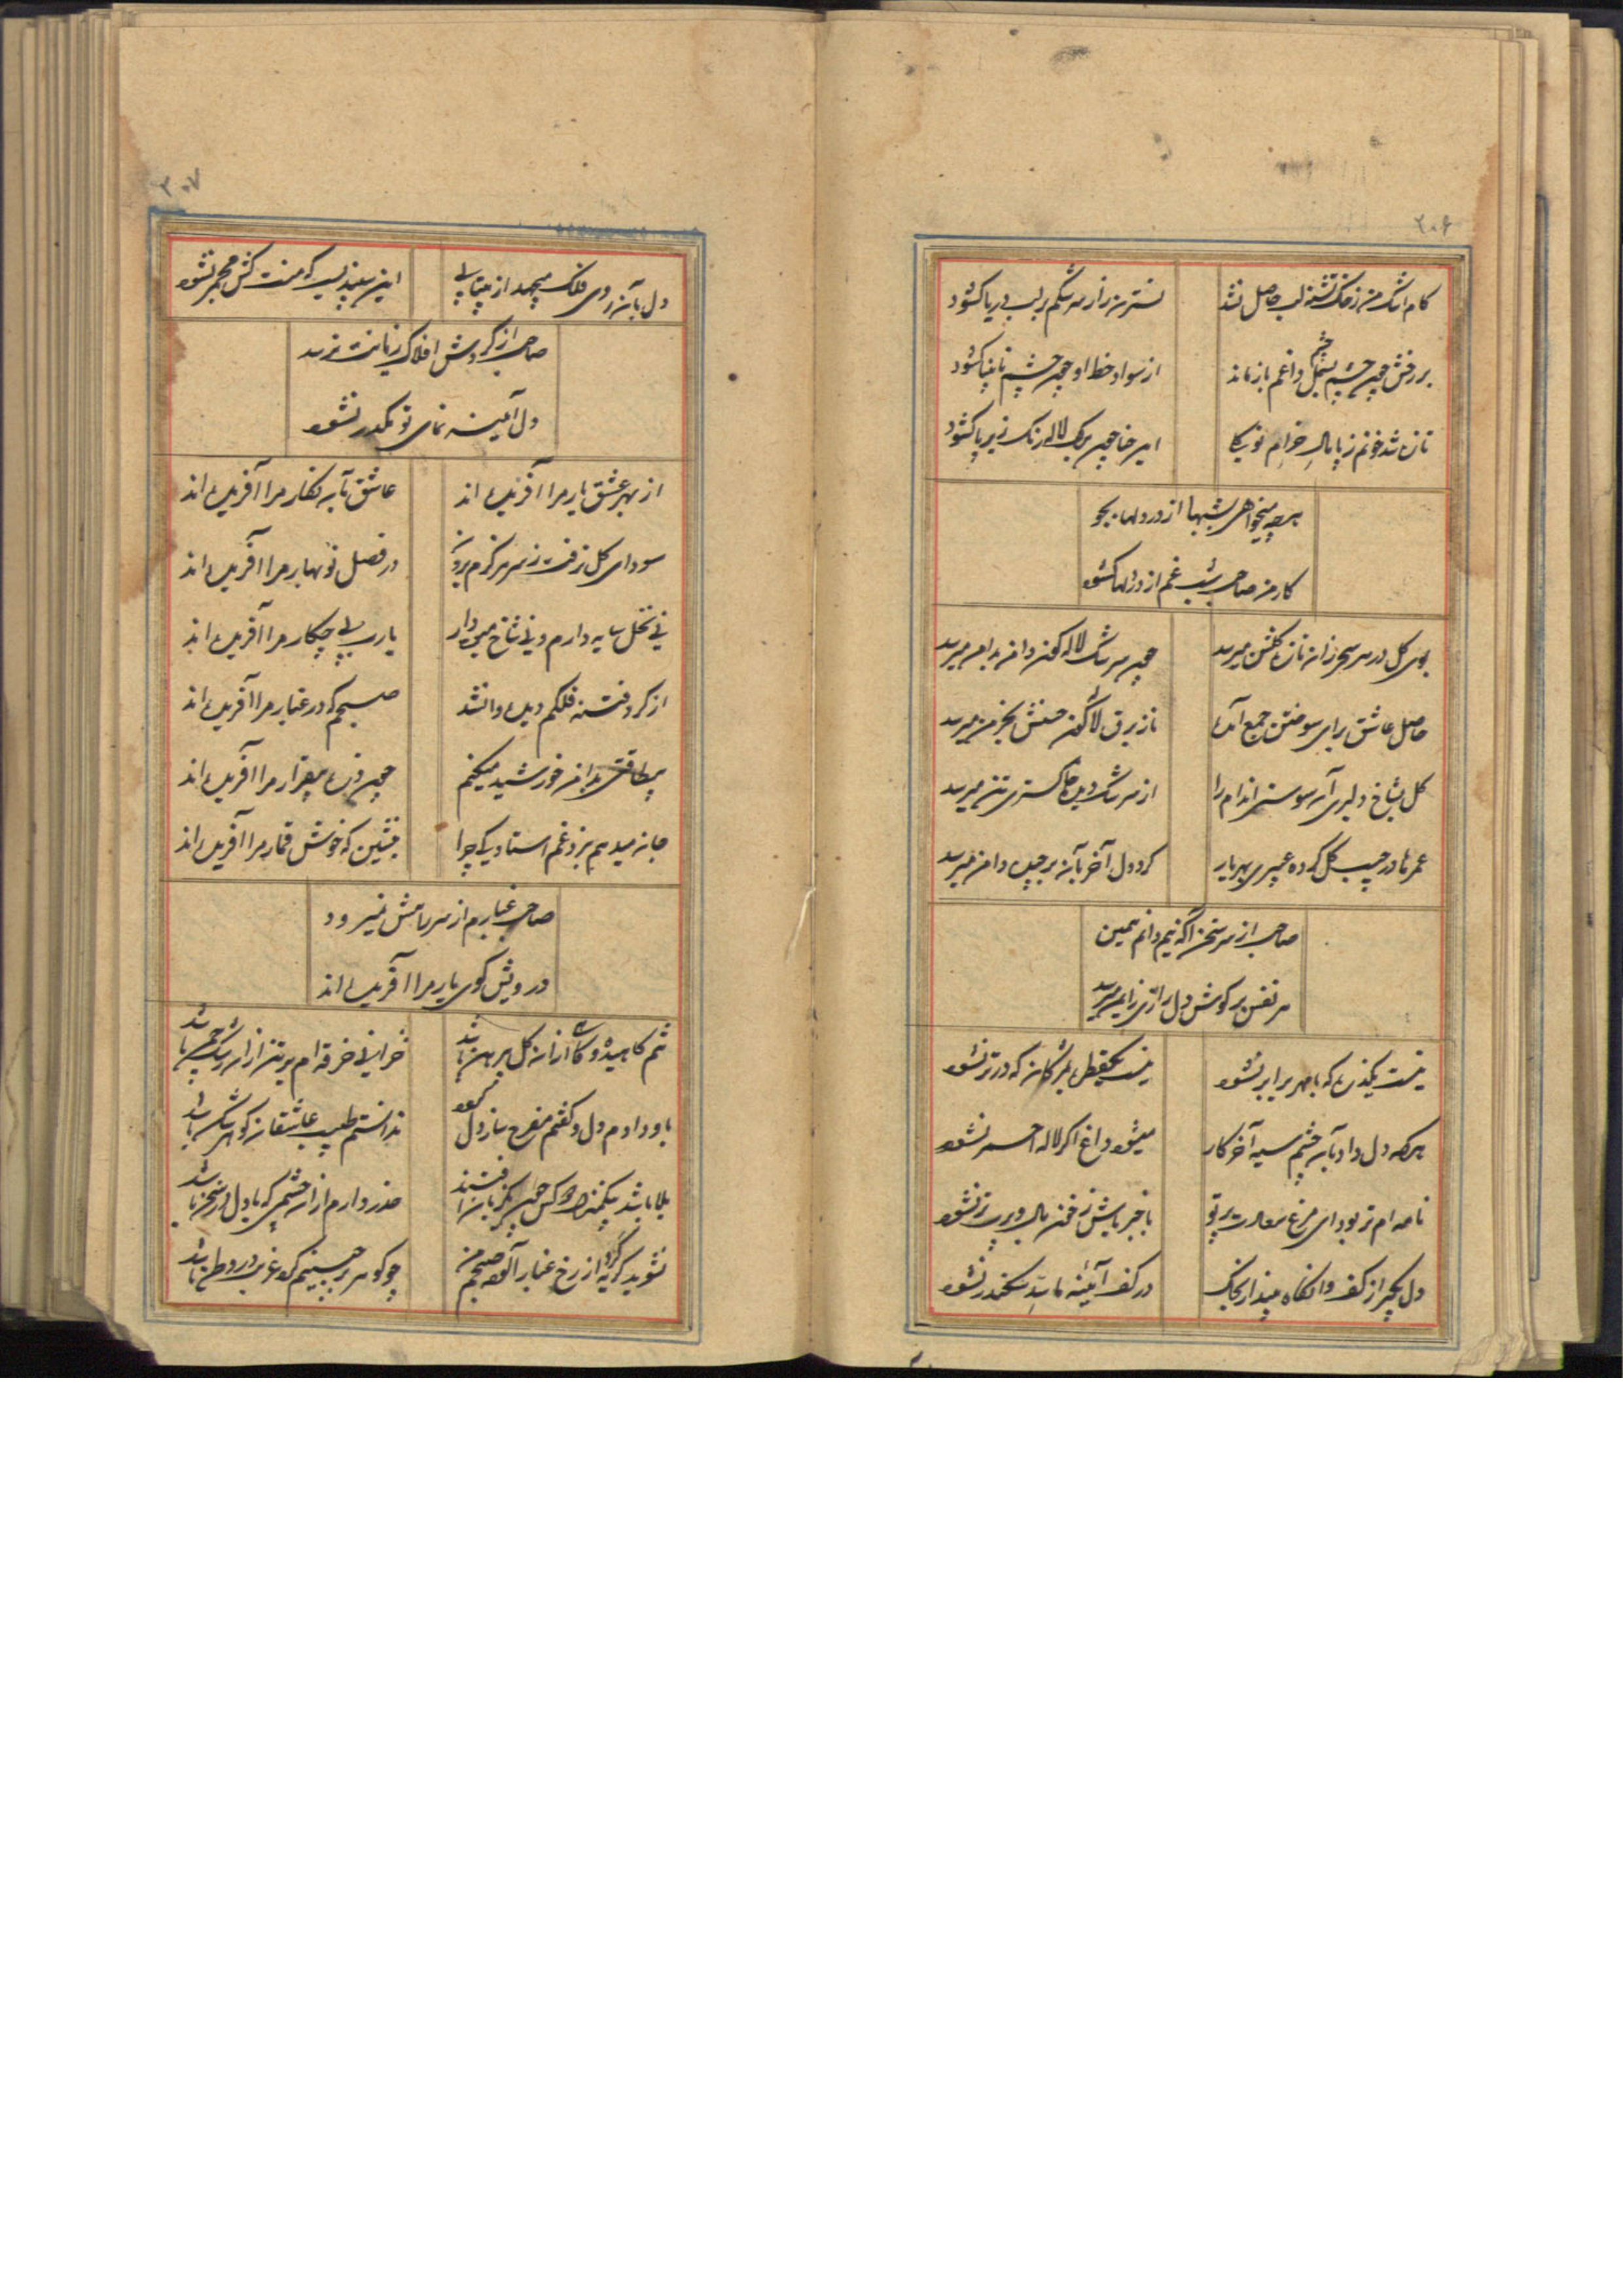 ۲۰۶
کام اشک من ز خاک تشنه لب حاصل نشد
نسترن زار سرشکم بر لب دریا کشود
بر رخش چون چشم بسمل چشم داغم باز ماند
از سواد خط او چون چشم نابینا کشود
تازه شد خونم ز پامال خرام
این حنا چون برک لاله رنک زیر پا کشود
هرچه میخواهی شبها از در دلها بجو
کار من صاحب شب غم از در دلها کشود
بوی کل در سر سحر زان تازه کلشن میرسد
چون سرشک لاله کون دامن بدامن میرسد
حاصل عاشق برای سوختن جمع آمده
تاز برق لاله کون حسنش بخرمن میرسد
کل بشاخ دلبری آن سوسن اندام را
از سرشک دیده خاکستری تن میرسد
عمرها در جیب کل کرده عبیری بهر یار
کرد دل آخر بآن برچیده دامن میرسد
صاحب از سر سخن آکه نیم دانم همین
هر نفس بر کوش دل رازی ز ایمن میرسد
نیست یکذره که با مهر برابر نشود
نیست یکقطره بمژکان که در تر نشود
هرکه دل داد بآن چشم سیه آخر کار
میشود داغ اکر لاله احمر نشود
نامه ام تر بود ای مرغ سعادت پرتو
باخبر باش ز خون بال و پرت تر نشود
دل بکیر از کف و آنکاه مینداز بخاک
در کف آینه تا بد سکندر نشود
۲۰۷
دل بآن روی فلک میجهد از بیتابی
این سپندیست که منت کش مجمر نشود
صاحب از کردش افلاک زیانت نرسد
دل آئینه نمای تو مکدر نشود
از بهر عشق یار مرا آفریده اند
عاشق بآن نکار مرا آفریده اند
سودای کل نرفت ز سر هرکزم برون
در فصل نوبهار مرا آفریده اند
نی نخل سایه دارم و نی شاخ میوه دار
یارب پی چکار مرا آفریده اند
از کرد فتنه فلکم دیده وا نشد
صبحم که در غبار مرا آفریده اند
بیطاقتی بدامن خورشید میکنم
چون ذره بیقرار مرا آفریده اند
جان میدهم بنرد غم استاده چرا
بنشین که خوش قمار مرا آفریده اند
صاحب غبارم از سر راهش نمیرود
درویش کوی یار مرا آفریده اند
تنم کاهیده و کاش از آن کل پیرهن باشد
خراباتی خرقه ام بر تن از آن رشک چمن باشد
باو دادم دل و کفتم مفرح سازد دل خود
ندانستم طبیب عاشقان کوهر شکن باشد
بلا باشد
حذر دارم از آن چشمی که با دل در سخن باشد
نشوید کریه کرد از رخ غبار آلوده صبح من
چو کوهر بر جبینم کرد غربت در وطن باشد